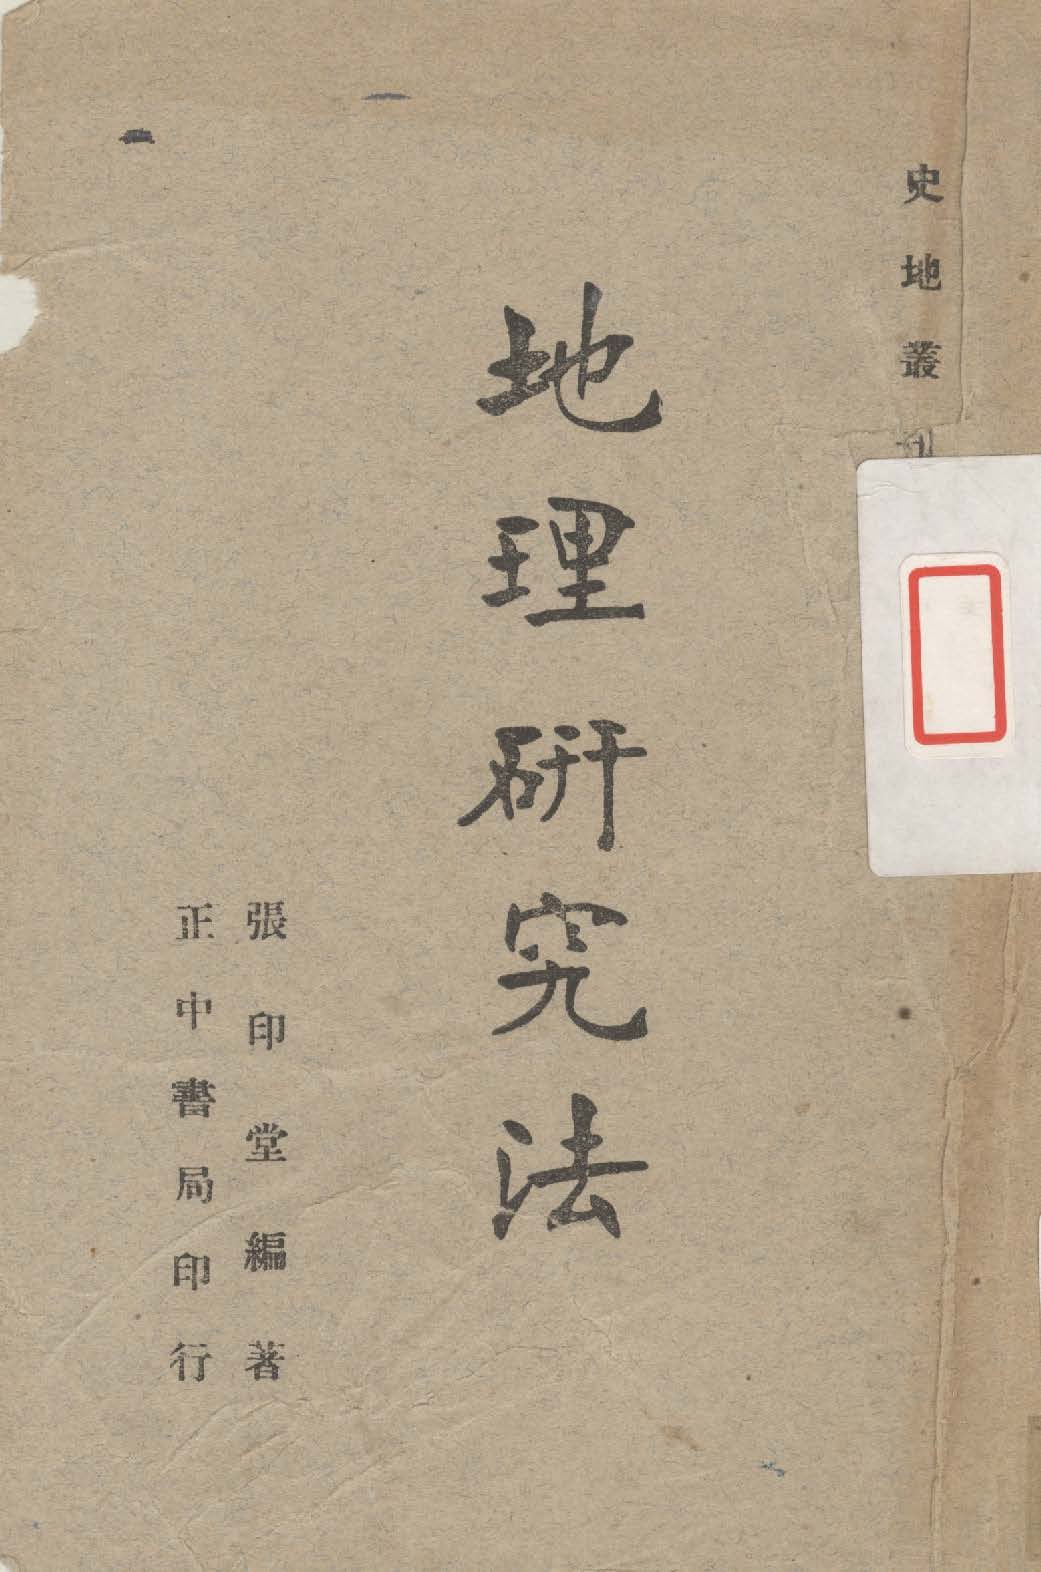 史地叢刊
地理研究法
張印堂編著
正中書局印行